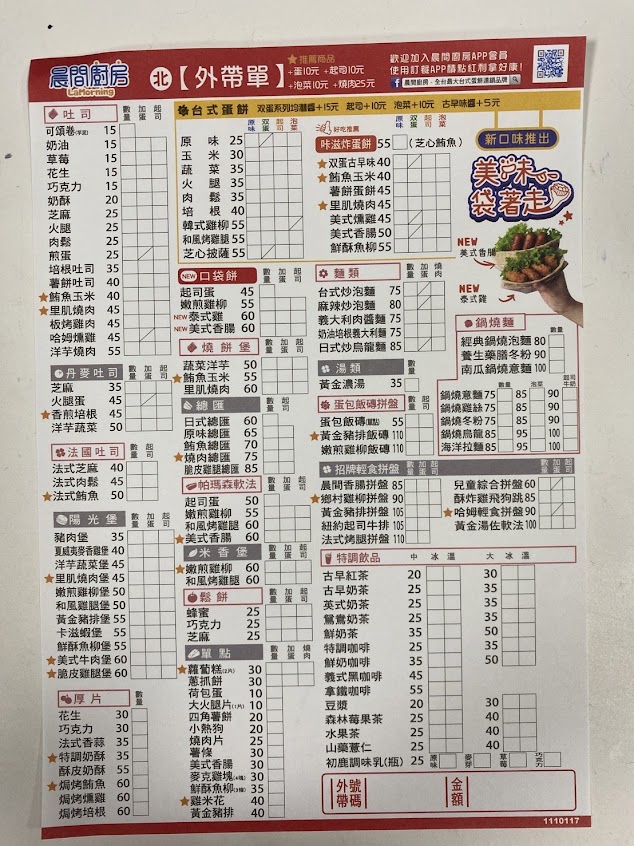 晨間廚房
LaMorning
北【外帶單】
★推薦商品
+蛋10元 +起司10元
+泡菜10元 +燒肉25元
歡迎加入晨間廚房APP會員
使用訂餐APP購點紅利拿好康!
晨間廚房 - 全台最大台式蛋餅連鎖品牌
吐司 數量 加蛋 起司
可頌卷 15
奶油 15
草莓 15
花生 15
巧克力 15
奶酥 20
芝麻 25
火腿 25
肉鬆 25
煎蛋 25
培根吐司 35
薯餅吐司 40
★鮪魚玉米 40
★里肌燒肉 45
板烤雞肉 45
哈姆燻雞 45
洋芋燒肉 55
丹麥吐司 數量 加蛋 起司
芝麻 35
火腿蛋 45
★香煎培根 45
洋芋蔬菜 50
法國吐司 數量 加蛋 起司
法式芝麻 40
法式肉鬆 45
★法式鮪魚 50
陽光堡 數量 加蛋 起司
豬肉堡 35
夏威夷麥香雞堡 40
洋芋蔬菜堡 45
★里肌燒肉堡 45
嫩煎雞柳堡 50
和風雞腿堡 50
黃金豬排堡 55
卡滋蝦堡 55
鮮酥魚柳堡 55
★美式牛肉堡 60
★脆皮雞腿堡 60
厚片 數量
花生 30
巧克力 30
法式香蒜 35
★特調奶酥 35
酥皮奶酥 55
★焗烤鮪魚 60
焗烤燻雞 60
焗烤培根 60
台式蛋餅 双蛋系列均附醬+15元 起司+10元 泡菜+10元 古早味醬+5元
原味 双蛋 起司 泡菜
原味 25
玉米 30
蔬菜 35
火腿 35
肉鬆 35
培根 40
韓式雞柳 55
和風烤雞腿 55
芝心披薩 55
好吃推薦
原味 双蛋 起司 泡菜
咔滋炸蛋餅 55 (芝心鮪魚)
★双蛋古早味 40
★鮪魚玉米 40
薯餅蛋餅 45
★里肌燒肉 45
美式燻雞 45
美式香腸 50
鮮酥魚柳 55
新口味推出
美味袋著走
NEW 美式香腸
NEW 泰式雞
NEW 口袋餅 數量 加蛋 起司
起司蛋 45
嫩煎雞柳 55
NEW 泰式雞 60
NEW 美式香腸 60
燒餅堡 數量 加蛋 起司
蔬菜洋芋 50
★鮪魚玉米 55
里肌燒肉 60
總匯 數量 加蛋 起司
日式總匯 60
原味總匯 65
鮪魚總匯 70
★燒肉總匯 75
脆皮雞腿總匯 85
帕瑪森軟法 數量 加蛋 起司
起司蛋 50
嫩煎雞柳 55
和風烤雞腿 60
★美式香腸 60
米香堡 數量 加蛋 起司
★嫩煎雞柳 60
和風烤雞腿 60
鬆餅 數量
蜂蜜 25
巧克力 25
芝麻 25
單點 數量 加蛋 燒肉
★蘿蔔糕(2片) 30
蔥抓餅 30
荷包蛋 10
大火腿片(1片) 10
四角薯餅 20
小熱狗 20
燒肉片 25
薯條 30
美式香腸 30
麥克雞塊 30
鮮酥魚柳 35
★雞米花 40
黃金豬排 40
麵類 數量 加蛋 燒肉
台式炒泡麵 75
麻辣炒泡麵 80
義大利肉醬麵 75
奶油培根義大利麵 75
日式炒烏龍麵 85
湯類 數量
黃金濃湯 35
蛋包飯磚拼盤 數量
蛋包飯磚(單點) 55
★黃金豬排飯磚 110
嫩煎雞柳飯磚 110
鍋燒麵 數量
經典鍋燒泡麵 80
養生藥膳冬粉 90
南瓜鍋燒意麵 100
數量 泡菜 起司牛奶
鍋燒意麵 75 85 90
鍋燒雞絲 75 85 90
鍋燒冬粉 75 85 90
鍋燒烏龍 85 95 100
海洋拉麵 85 95 100
招牌輕食拼盤 數量 加蛋 起司
晨間香腸拼盤 85
★鄉村雞柳拼盤 90
★黃金豬排拼盤 105
紐約起司牛排 105
法式烤腿拼盤 110
兒童綜合拼盤 60
酥炸雞飛狗跳 85
★哈姆輕食拼盤 90
★黃金湯佐軟法 100
特調飲品 中 冰 溫 大 冰 溫
古早紅茶 20 30
古早奶茶 25 35
英式奶茶 25 35
鴛鴦奶茶 25 35
鮮奶茶 35 50
特調咖啡 25 35
鮮奶咖啡 35 50
義式黑咖啡 45
拿鐵咖啡 55
豆漿 20 30
森林莓果茶 25 40
水果茶 25 40
山藥薏仁 25 40
初鹿調味乳(瓶) 25 原味 麥芽 草莓 巧克力
外帶號碼 金額
1110117